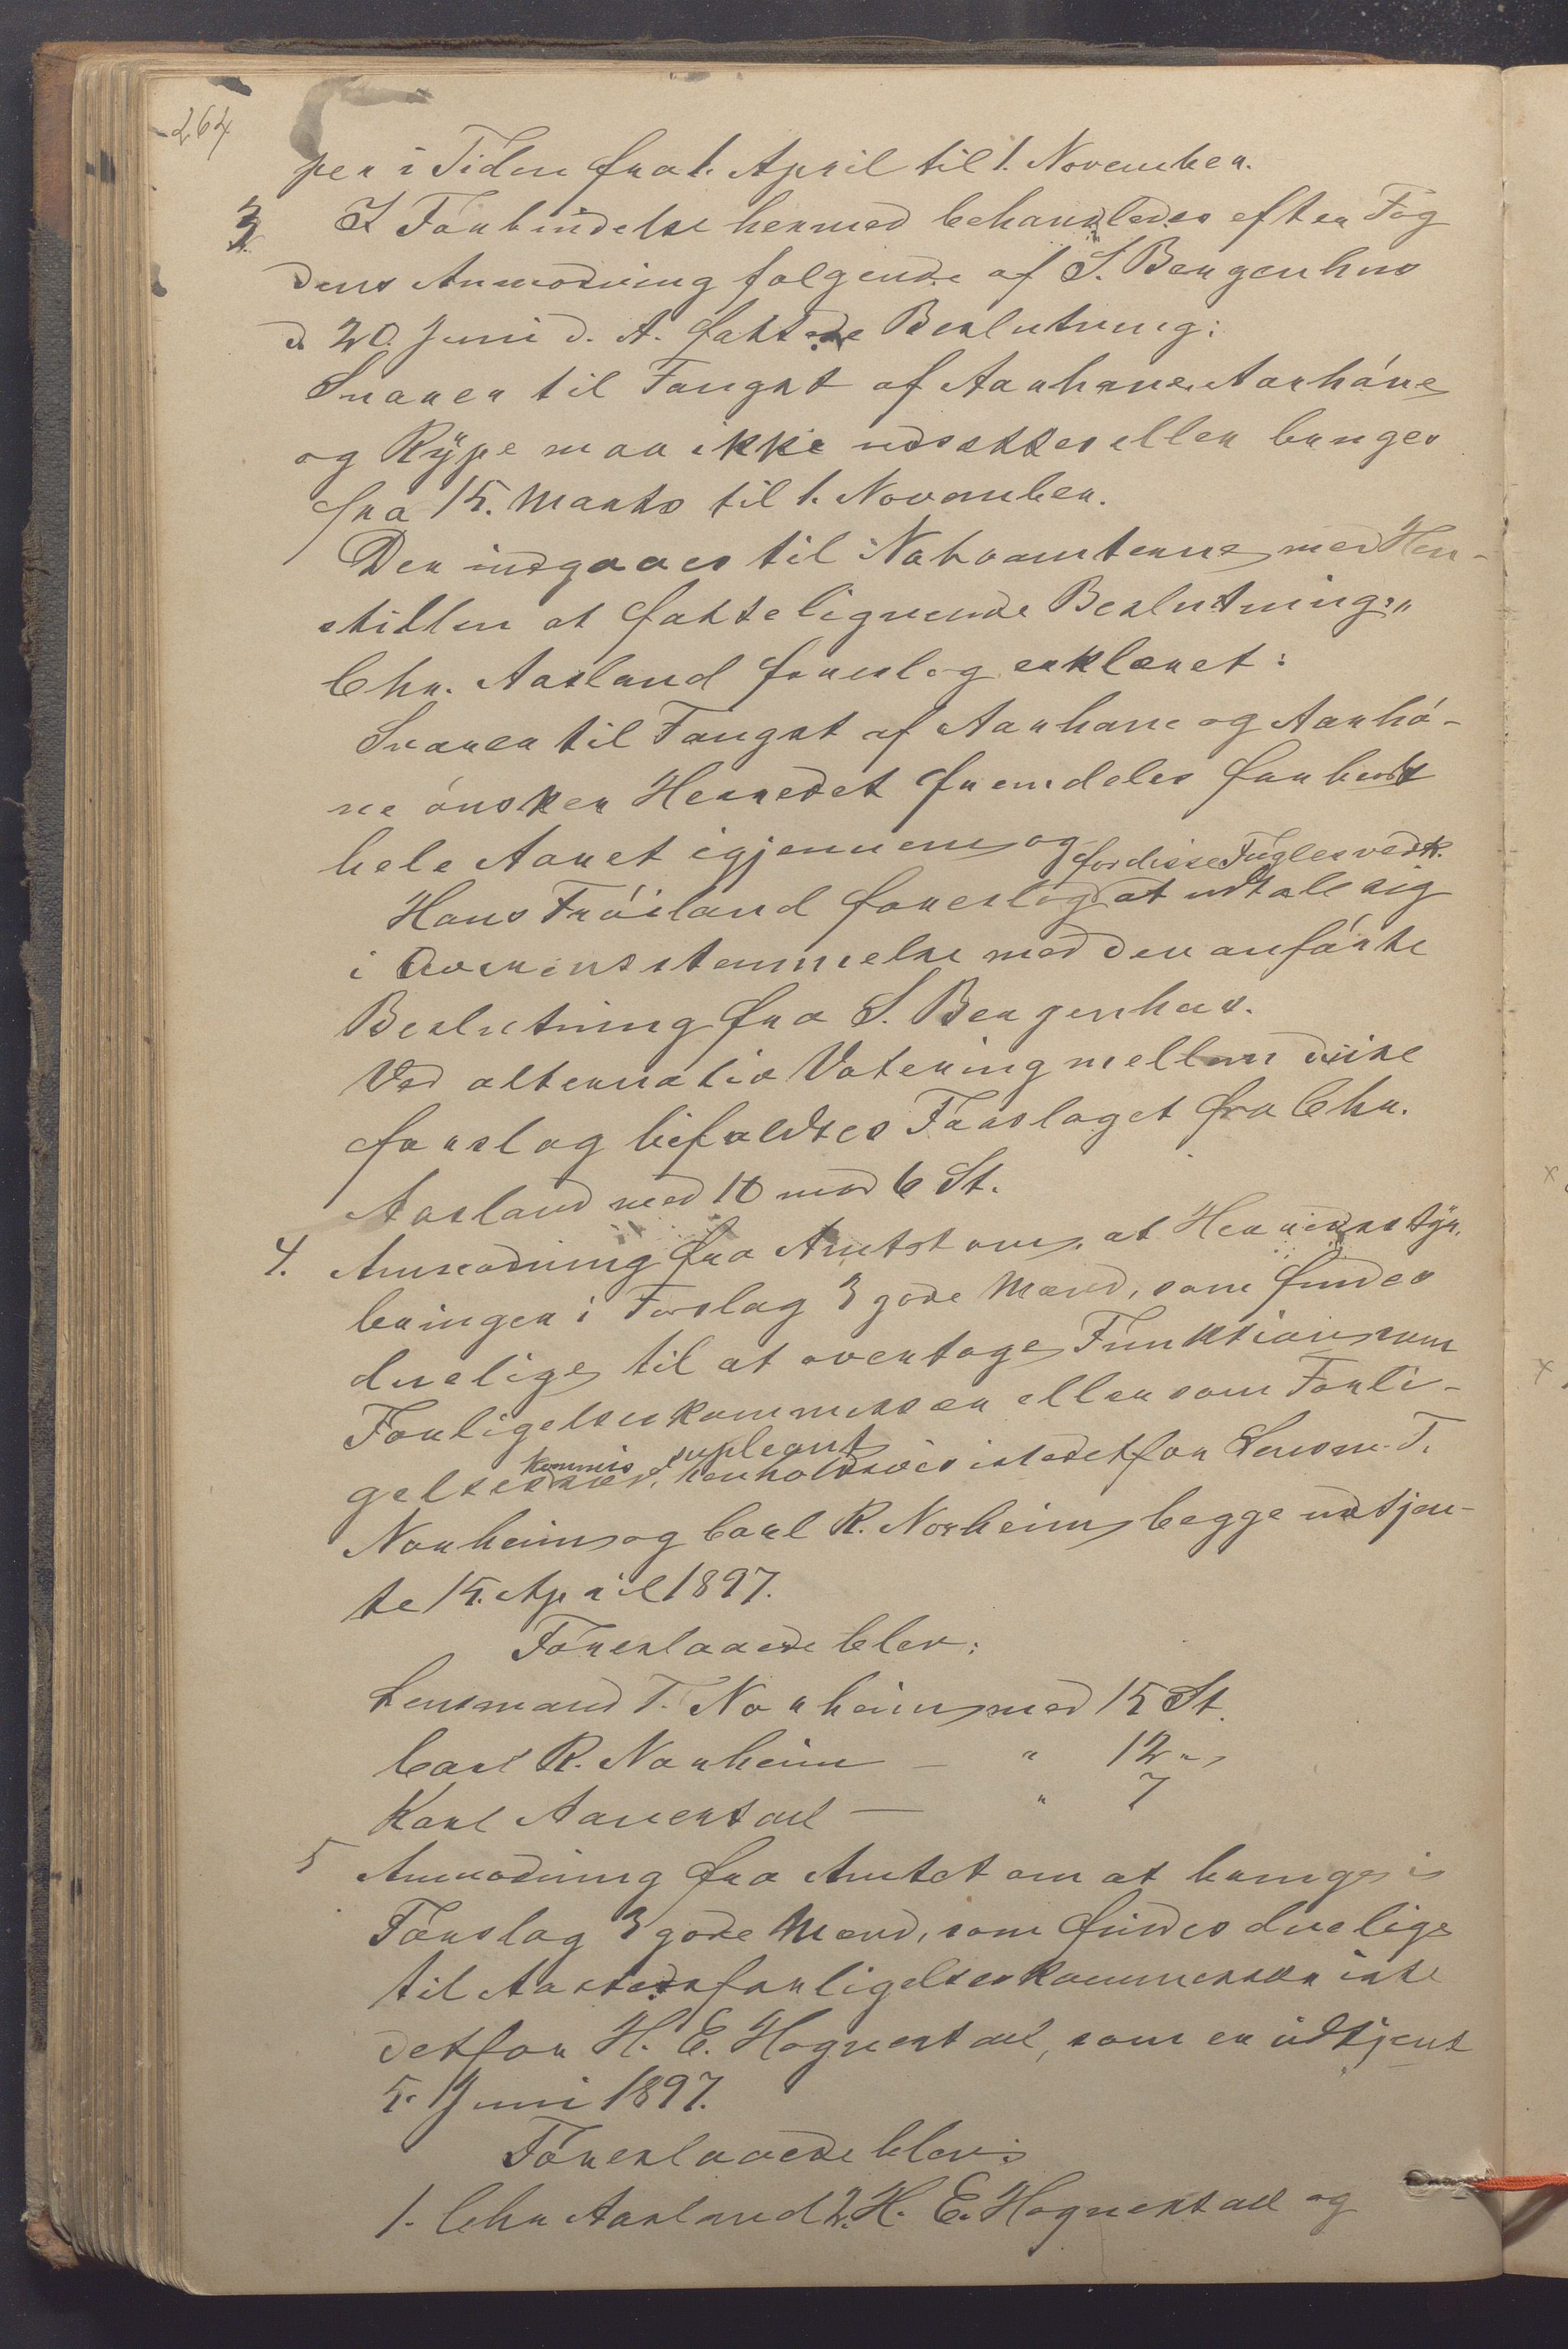 264
per i Tiden fra 1. April til 1. November.
3. I Forbindelse hermed behandledes efter Fog
dens Anmodning følgende af S. Bergenhus
d. 20. Juni d. A. fattede Beslutning:
Snarer til Fangst af Aarhane, Aarhóne
og Rÿpe maa ikke udsættes eller bruges
fra 15. Marts til 1. November.
Der indgaaes til Naboamterne med Hen-
stillen at fatte lignende Beslutning:"
Chr. Aasland foreslog erklæret:
Snarer til Fangst af Aarhane og Aarhó-
ne ónsker Herredet fremdeles forbudt
hele Aaret igjennem og
for disse Fugles vedk.
Hans Fróiland foreslog at udtale sig
i Overensstemmelse med den anfórte
Beslutning fra S. Bergenhus.
Ved alternativ Votering mellem disse
forslag bifaldtes Forslaget fra Chr.
Aasland med 10 mod 6 St.
4. Anmodning fra Amtet om, at Herredsstyr.
bringer i Forslag 3 gode Mænd, som findes
duelige til at overtage Funktion som
Forligelseskommissær eller som Forli-
kommis supleant
gelses henholdsvis istedetfor Lensm. T.
Norheim og Carl R. Norheim, begge udtjen-
te 15. April 1897.
Foreslaaede blev:
Lensmand T. Norheim med 15 St.
Carl R. Norheim — " 12 "
Karl Aarrestad — " 7
5 Anmodning fra Amtet om at bringe i
Forslag 3 gode Mænd, som findes duelige
til Aastedsforligelseskommissær iste
detfor H. E. Hognestad, som er udtjent
5. Juni 1897.
Foreslaaede blev:
1. Chr Aasland 2. H. E. Hognestad og